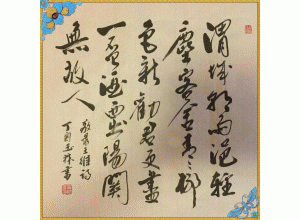 渭城朝雨浥輕
塵客舍青々柳
色新勸君更盡
一盃酒西出陽關
無故人
王維詩
丁酉
書